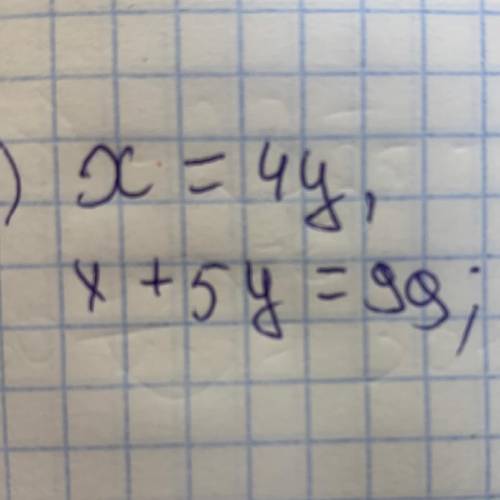 ) x = 4y,
x + 5y = 99;